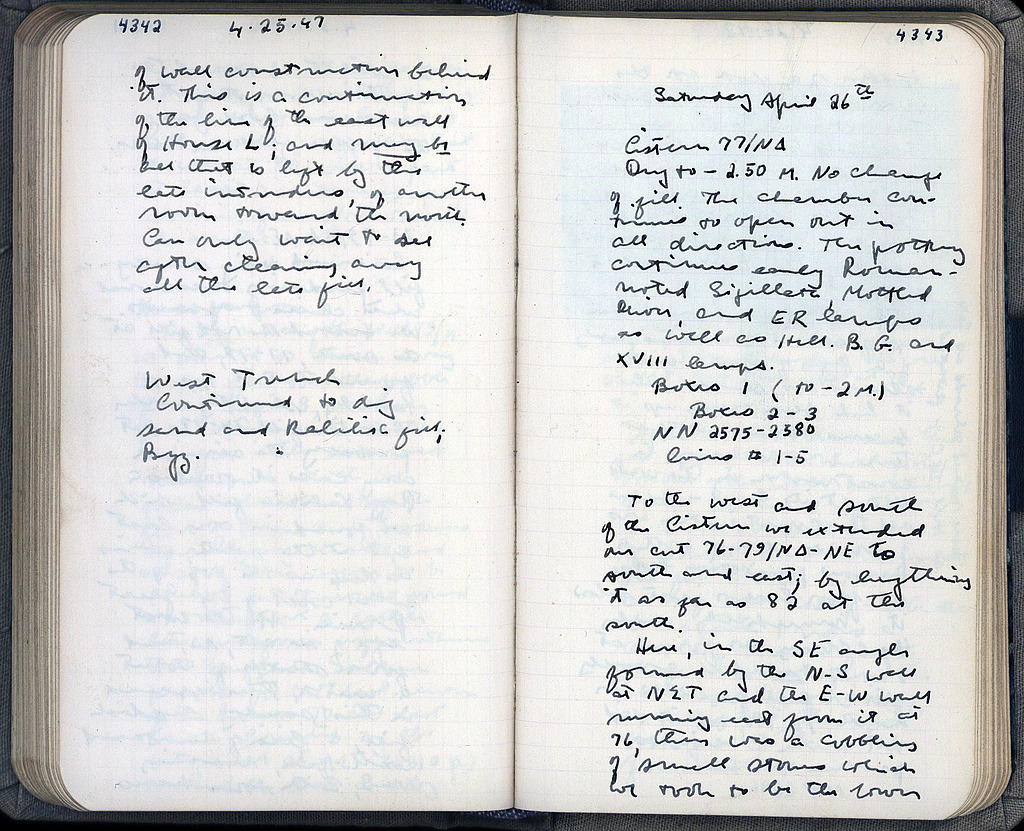 4342 4.25.47
of wall construction behind
it. This is a continuation
of the line of the east wall
of House L; and may be
all that is left by the
late intruders, of another
room toward the north.
Can only wait to see
after clearing away
all the late fill.
West Trench
Continued to dig
sand and Kalilia fill;
Byz.
4343
Saturday April 26th
Cistern 77/ΝΔ
Dug to - 2.50 M. No change
of fill. The chamber con-
tinues to open out in
all directions. The pottery
continues early Roman -
noted Sigillata, Mottled
and ER lamps
as well as Hell. B. G. and
XVIII lamps.
Boxes 1 (to - 2 M.)
Boxes 2-3
NN 2575-2580
Coins # 1-5
To the west and south
of the Cistern we extended
our cut 76-79/ΝΔ-ΝΕ to
south and east; by lengthening
it as far as 82 at the
south.
Here, in the SE angle
formed by the N-S wall
at and the E-W wall
running east from it at
76, there was a cobbling
of small stones which
we took to be the lower